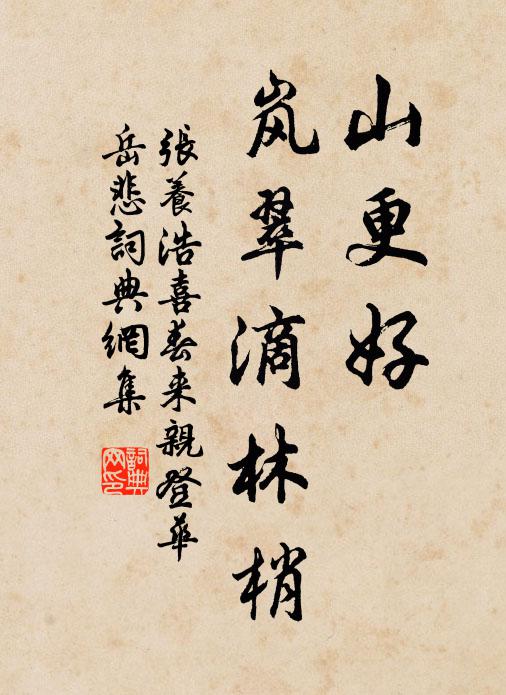 山更好
岚翠滴林梢
張養浩喜春来親登華
岳悲詞典網集
詞典网印